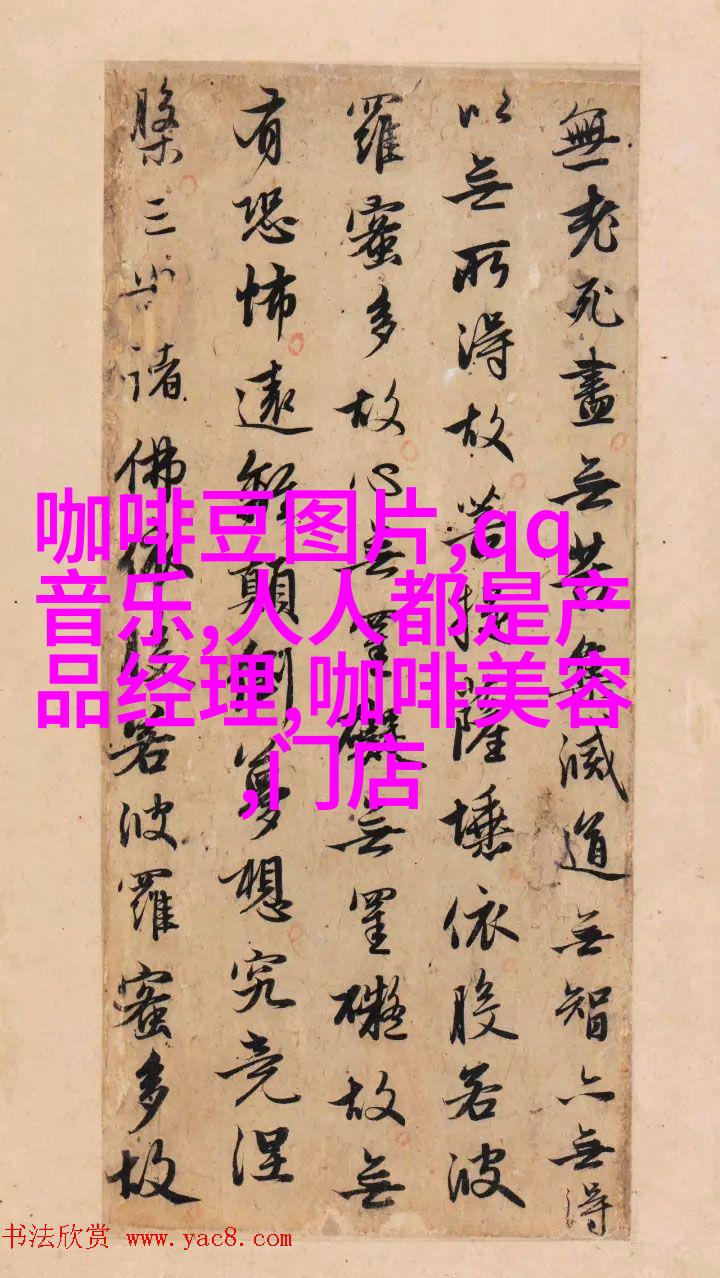 無老死盡无苦集滅道无智亦无得
以无所得故菩提薩埵依般若波
羅蜜多故心无罣礙无罣礙故无
有恐怖遠離顛倒夢想究竟涅
槃三世諸佛依般若波羅蜜多故
咖啡豆图片,qq
音乐,人人都是产
品经理,咖啡美容
,门店
书法欣赏 www.yac8.com